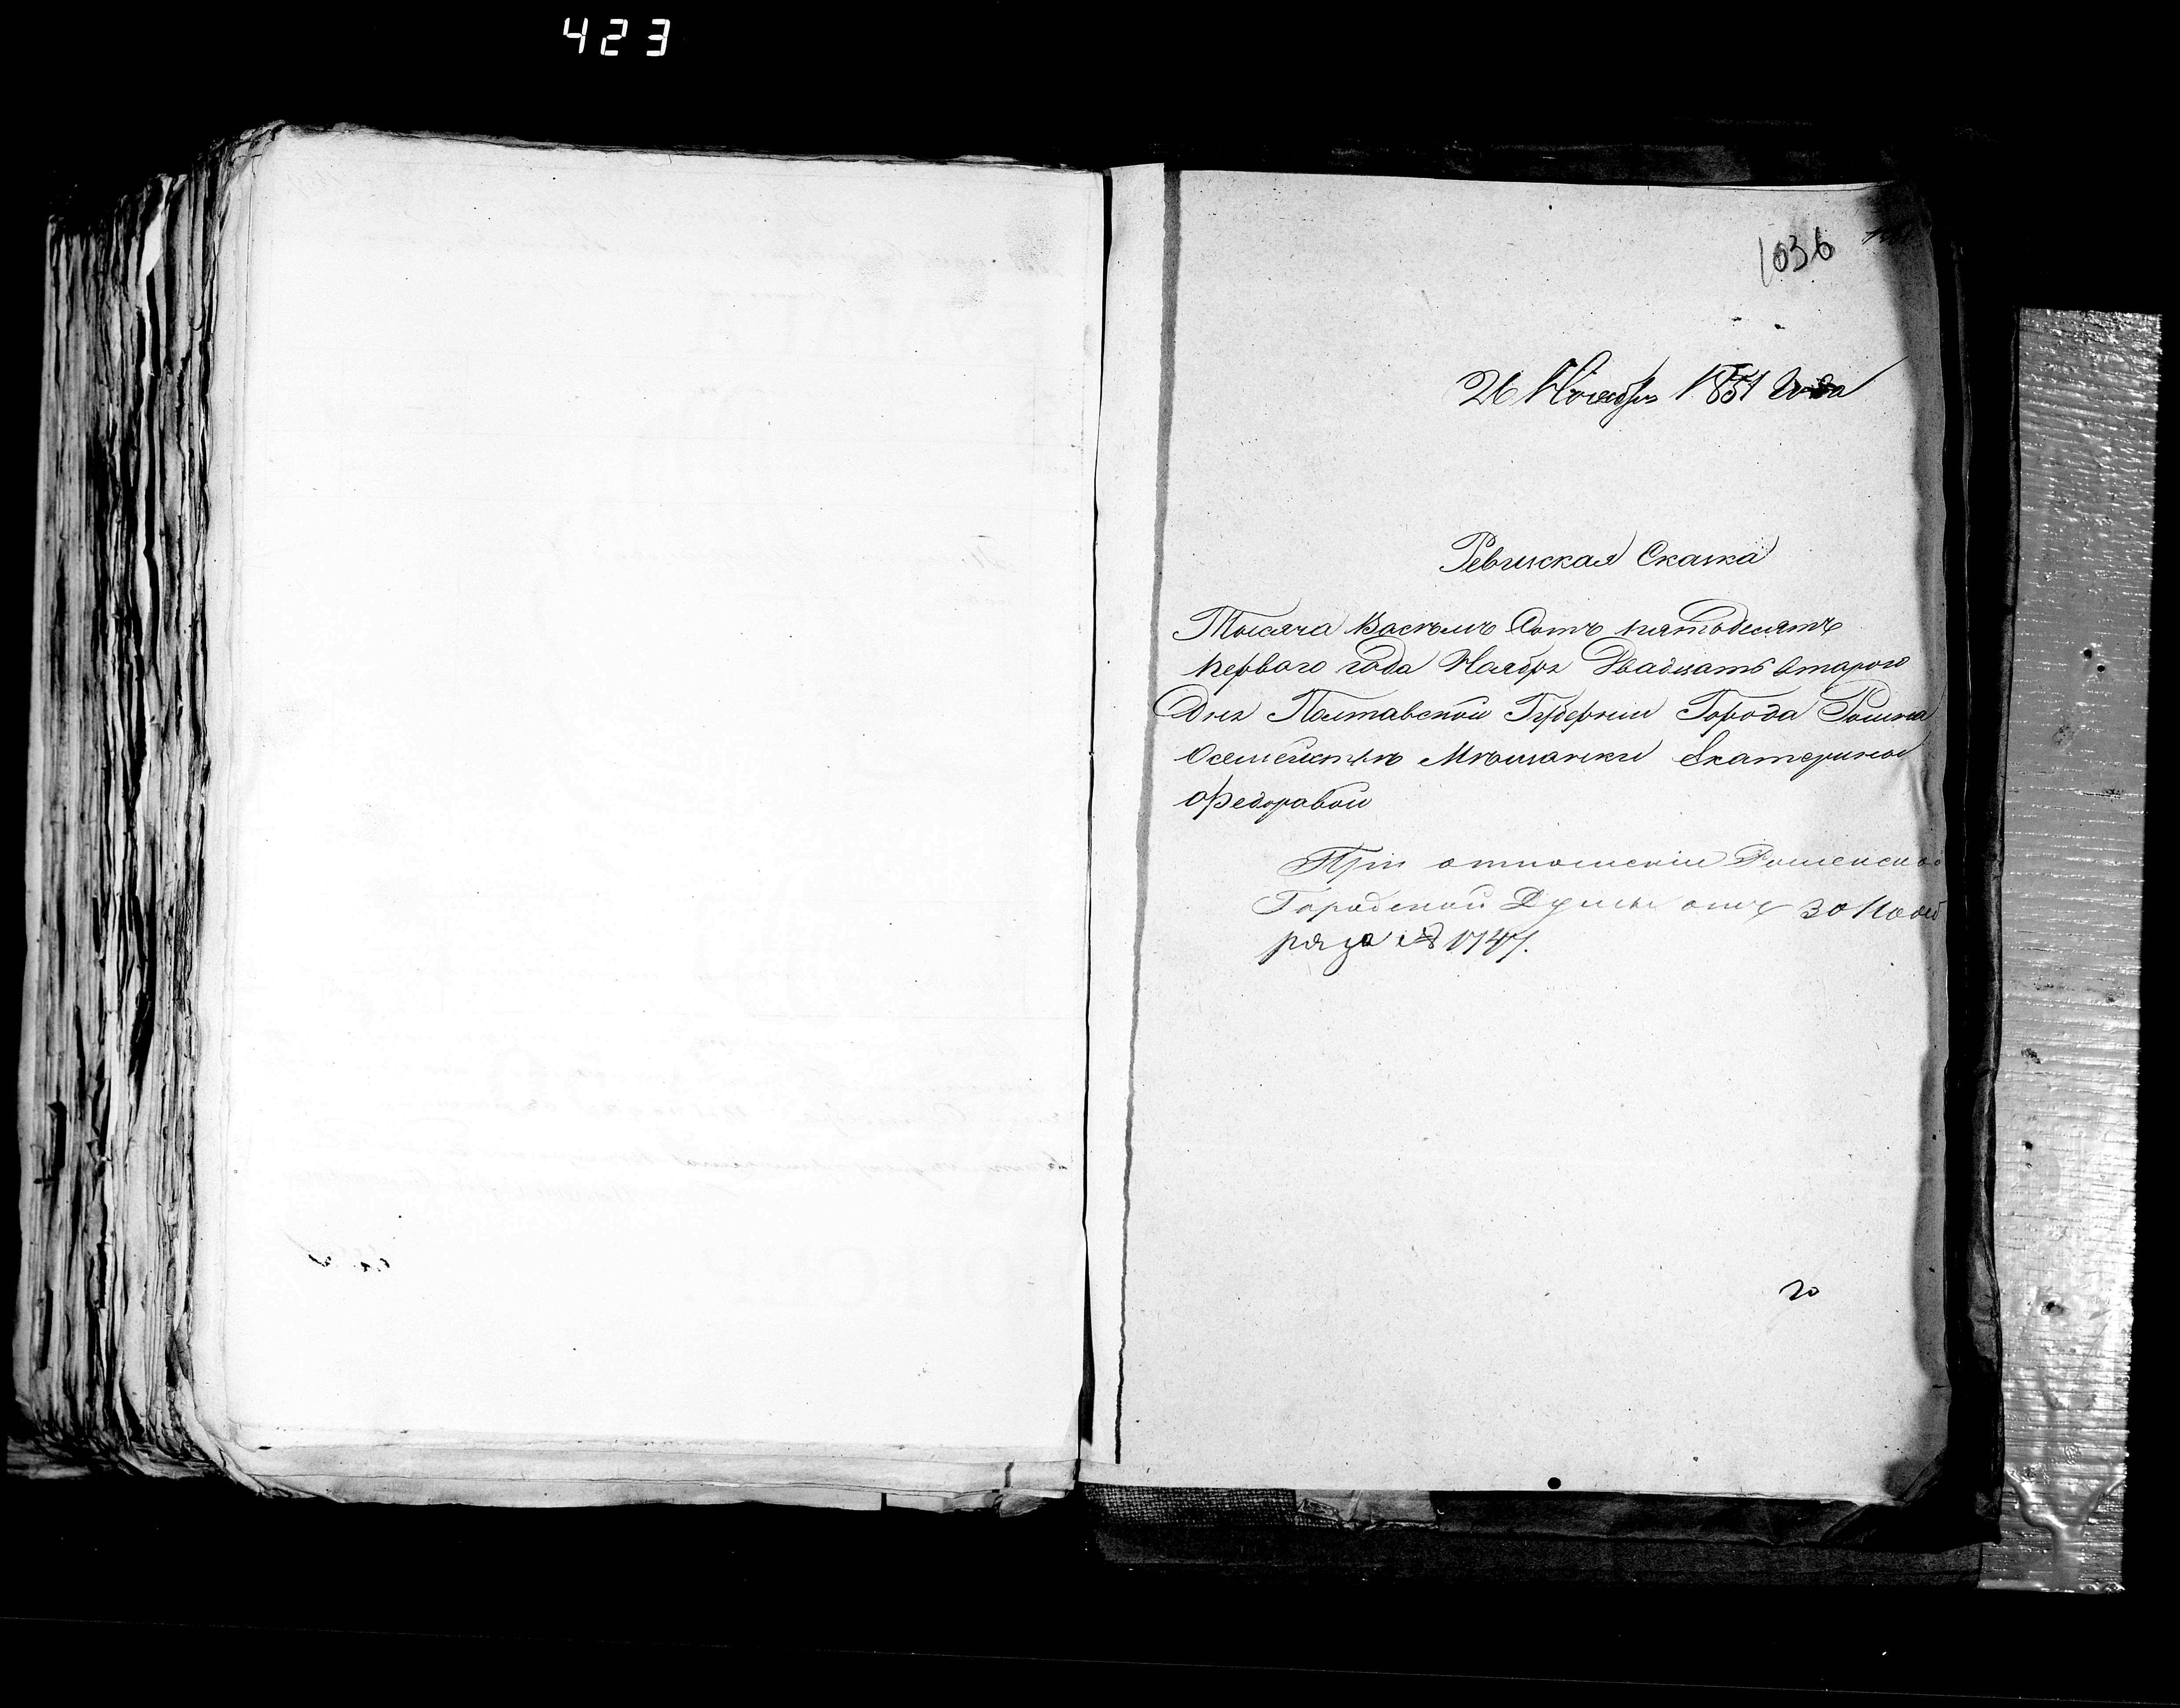 423
1036
26 Ноября 1851 Года
Ревиская Скаска
Тысяча Восемъ Сотъ пятьдесятъ
первого года Ноября Двадцать втарого
Дня Полтавской Губернии Города Ромна
Осемействъ Мещанки Екатерины
Федоравой
При отношеніи Роменской
Городской Думы отъ 30 Нояб
ря за № 1747.
20